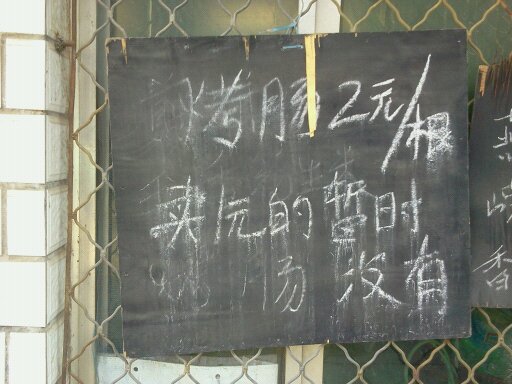 烤肠2元/根
卖1元的暂时
肠 没有
香